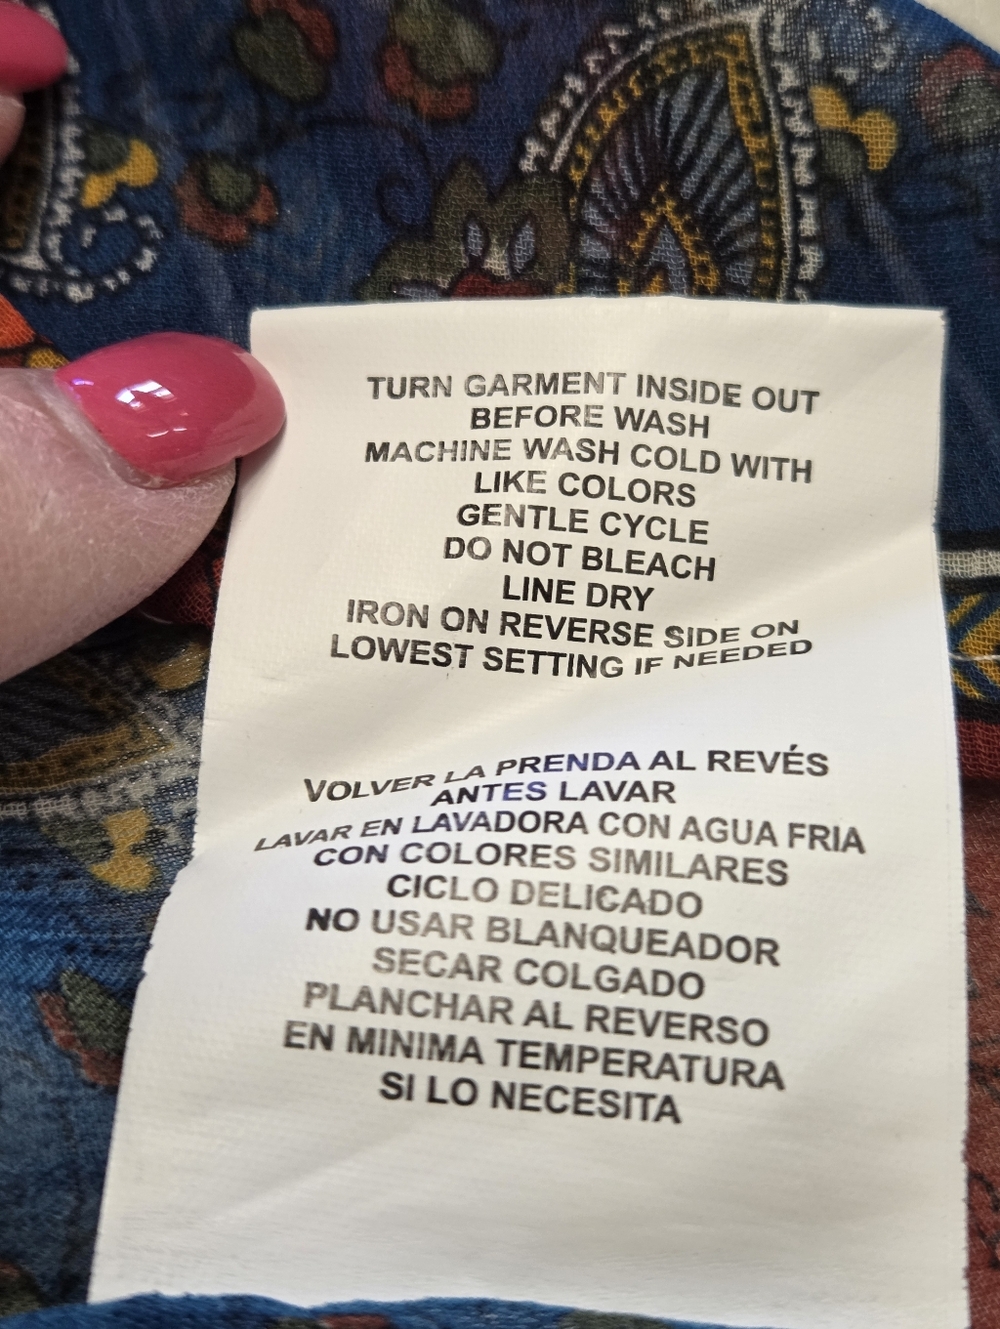 TURN GARMENT INSIDE OUT
BEFORE WASH
MACHINE WASH COLD WITH
LIKE COLORS
GENTLE CYCLE
DO NOT BLEACH
LINE DRY
IRON ON REVERSE SIDE ON
LOWEST SETTING IF NEEDED
VOLVER LA PRENDA AL REVÉS
ANTES LAVAR
LAVAR EN LAVADORA CON AGUA FRIA
CON COLORES SIMILARES
CICLO DELICADO
NO USAR BLANQUEADOR
SECAR COLGADO
PLANCHAR AL REVERSO
EN MINIMA TEMPERATURA
SI LO NECESITA